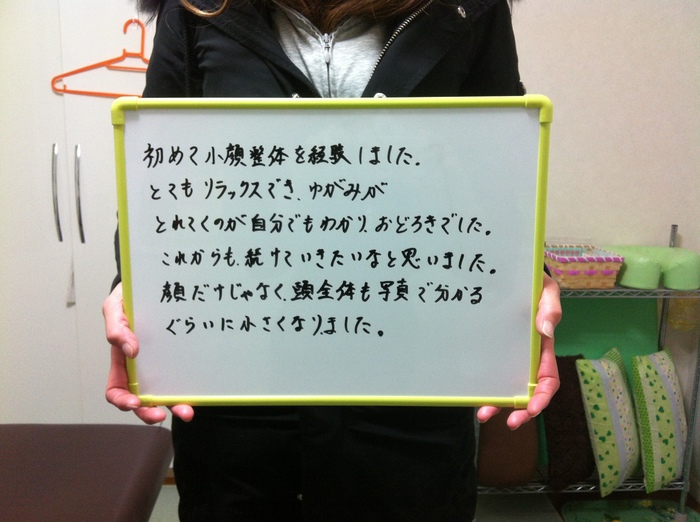 初めて小顔整体を経験しました。
とてもリラックスでき、ゆがみが
とれてくのが自分でもわかり、おどろきでした。
これからも、続けていきたいなと思いました。
顔だけじゃなく、頭全体も写真で分かる
ぐらいに小さくなりました。